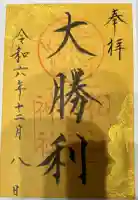 奉拝
大勝利
令和六年十二月八日